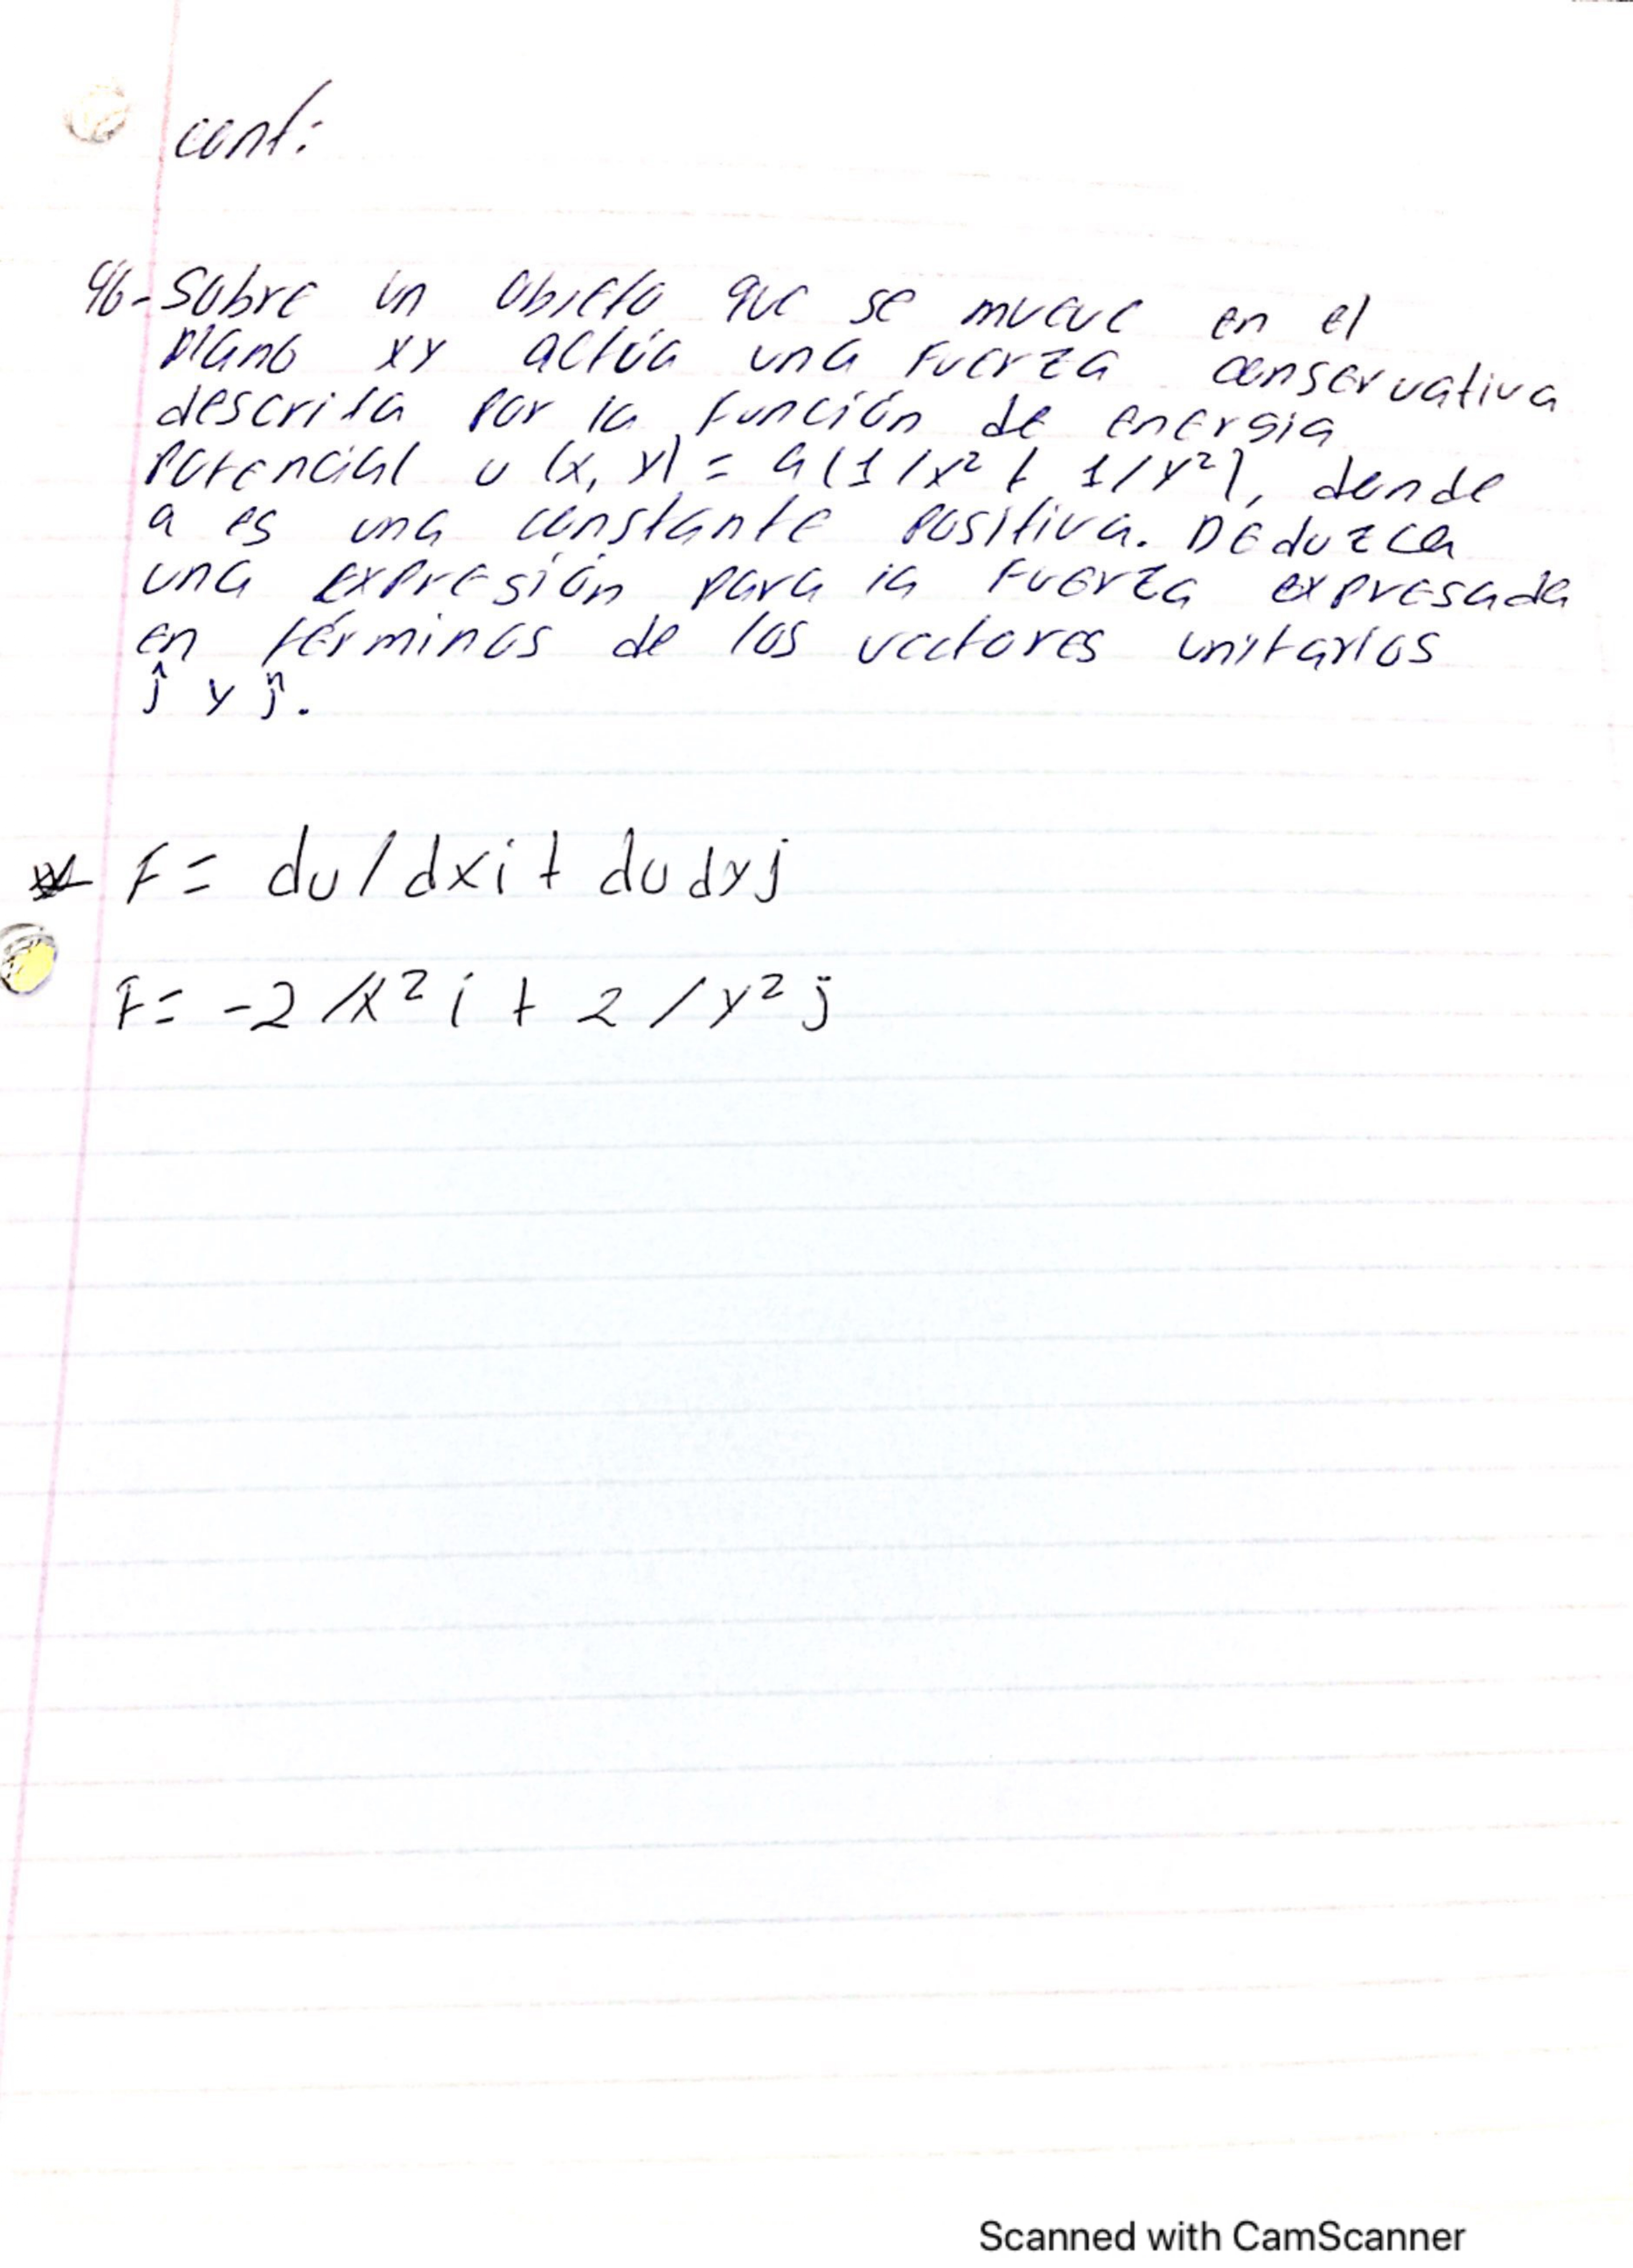 cont:
46- Sobre un objeto que se mueve en el
plano xy actúa una fuerza conservativa
descrita por la función de energia
potencial u (x, y) = a(1/x² + 1/y²), donde
a es una constante positiva. Deduzca
una expresión para la fuerza expresada
en términos de los vectores unitarios
ĵ y ĵ.
F = du/dxi + dudyj
F = -2/x² i + 2/y² j
Scanned with CamScanner